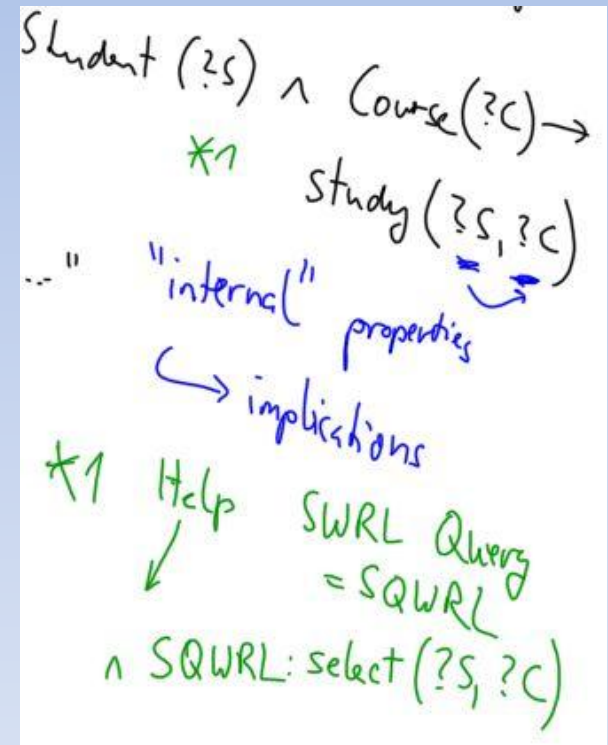 Student (?S) ∧ Course(?C) →
*1
study (?S, ?C)
..." "internal" properties
↳ implications
*1 Help SWRL Query
= SQWRL
∧ SQWRL: select (?S, ?C)